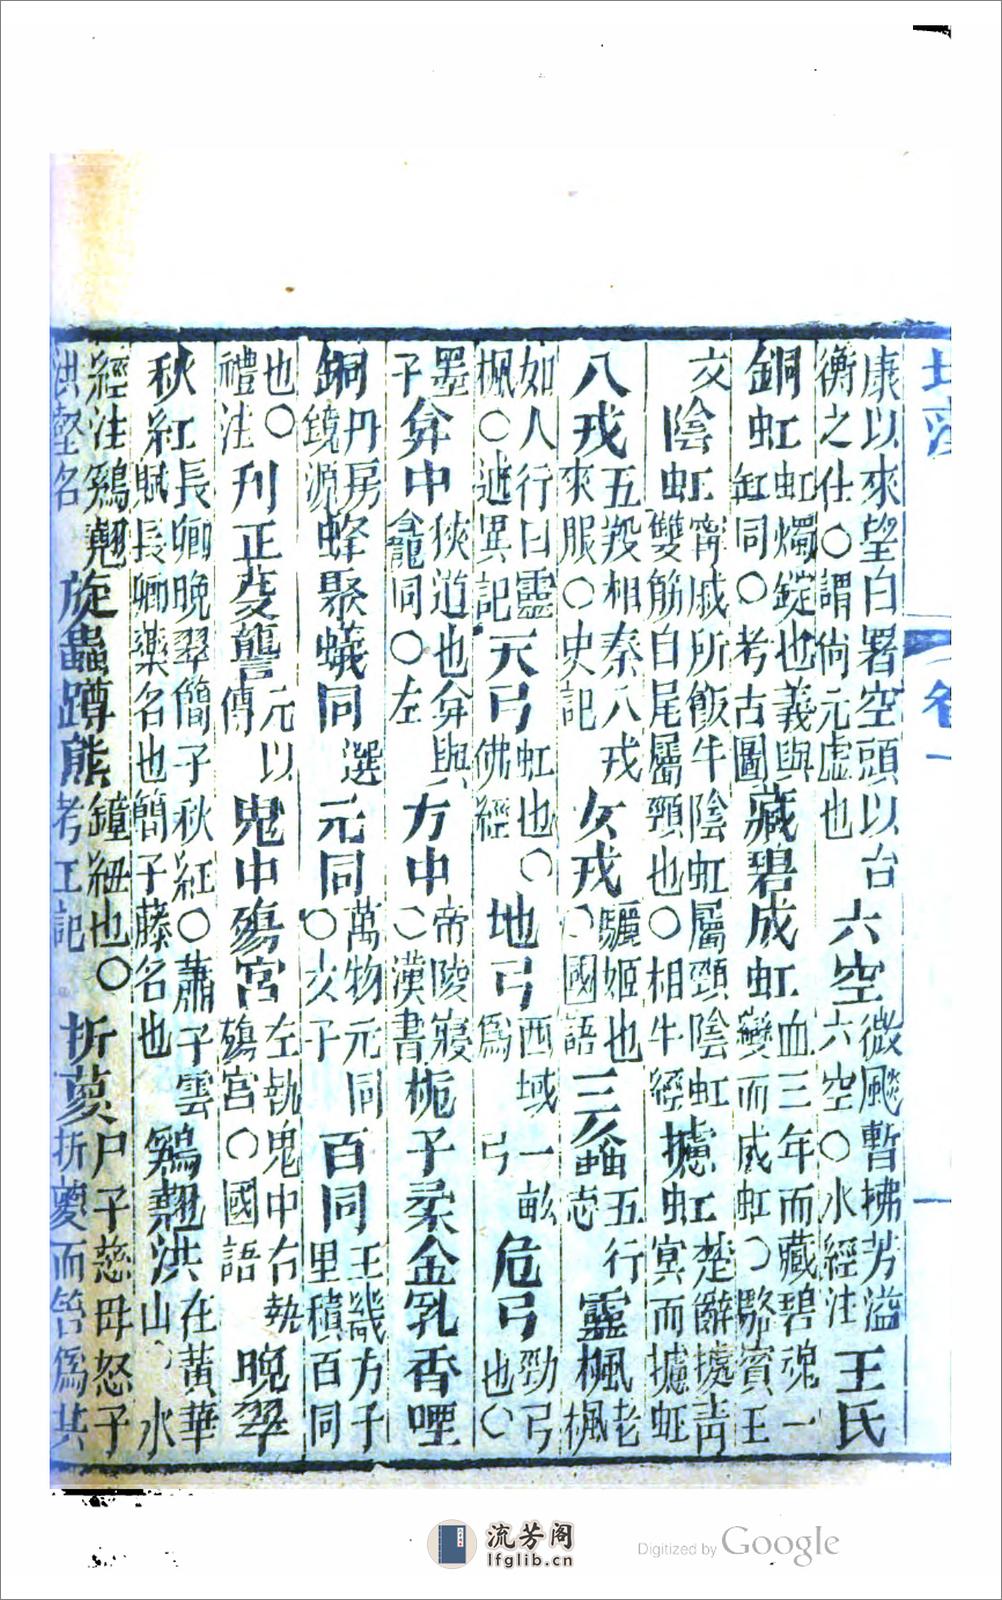 康以來望白署空頭以台
衡之仕○謂尙元虛也
六空
微颸暫拂芳溢
六空○水經注
王氏
銅虹
虹燭錠也義與
缸同○考古圖
藏碧成虹
血三年而藏碧魂一
變而成虹○駱賓王
文
陰虹
甯戚所飯牛陰虹屬頸陰虹
雙筋白尾屬頸也○相牛經
攄虹
楚辭據靑
冥而攄虹
八戎
五羖相秦八戎
來服○史記
女戎
驪姬也
○國語
三
五行
志
靈楓
老
楓
如人行曰靈
楓○述異記
天弓
虹也○
佛經
地弓
西域一畝
爲弓
危弓
勁弓
也○
墨
子
弇中
狹道也弇與
龕同○左
方中
帝陵寢
○漢書
梔子柔金乳香哩
銅
丹房
鏡源
蜂聚蟻同
選
元同
萬物元同
○亥子
百同
王畿方子
里積百同
也○
禮注
刊正
元以
傳
鬼中殤宮
左執鬼中右執
殤宮○國語
晚翠
秋紅
長卿晚翠簡子秋紅○蕭子雲
賦長卿藥名也簡子藤名也
鷄翹洪
在黃華
山○水
經注鷄翹
洪壑名
旋蟲蹲熊
鐘紐也○
考工記
折葼
尸子慈母怒子
折葼而笞爲其
卷一
一
流芳阁
lfglib.cn
Digitized by Google